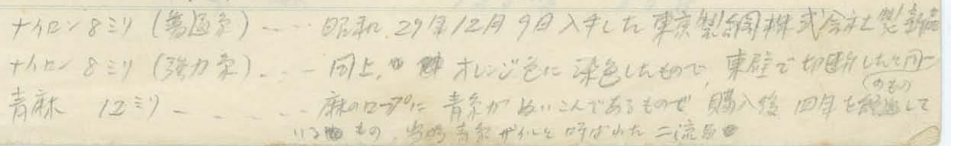 ナイロン8ミリ(普通糸)‥‥昭和29年12月9日入手した東京製綱株式会社製新品
ナイロン8ミリ(強力糸)‥‥同上、オレンジ色に染色したもので、東壁で切断したと同一のもの
青麻 12ミリ ‥‥麻のロープに青糸がぬいこんであるもので、購入後四年を経過して
いるもの、当時青糸ザイルと呼ばれた二流品